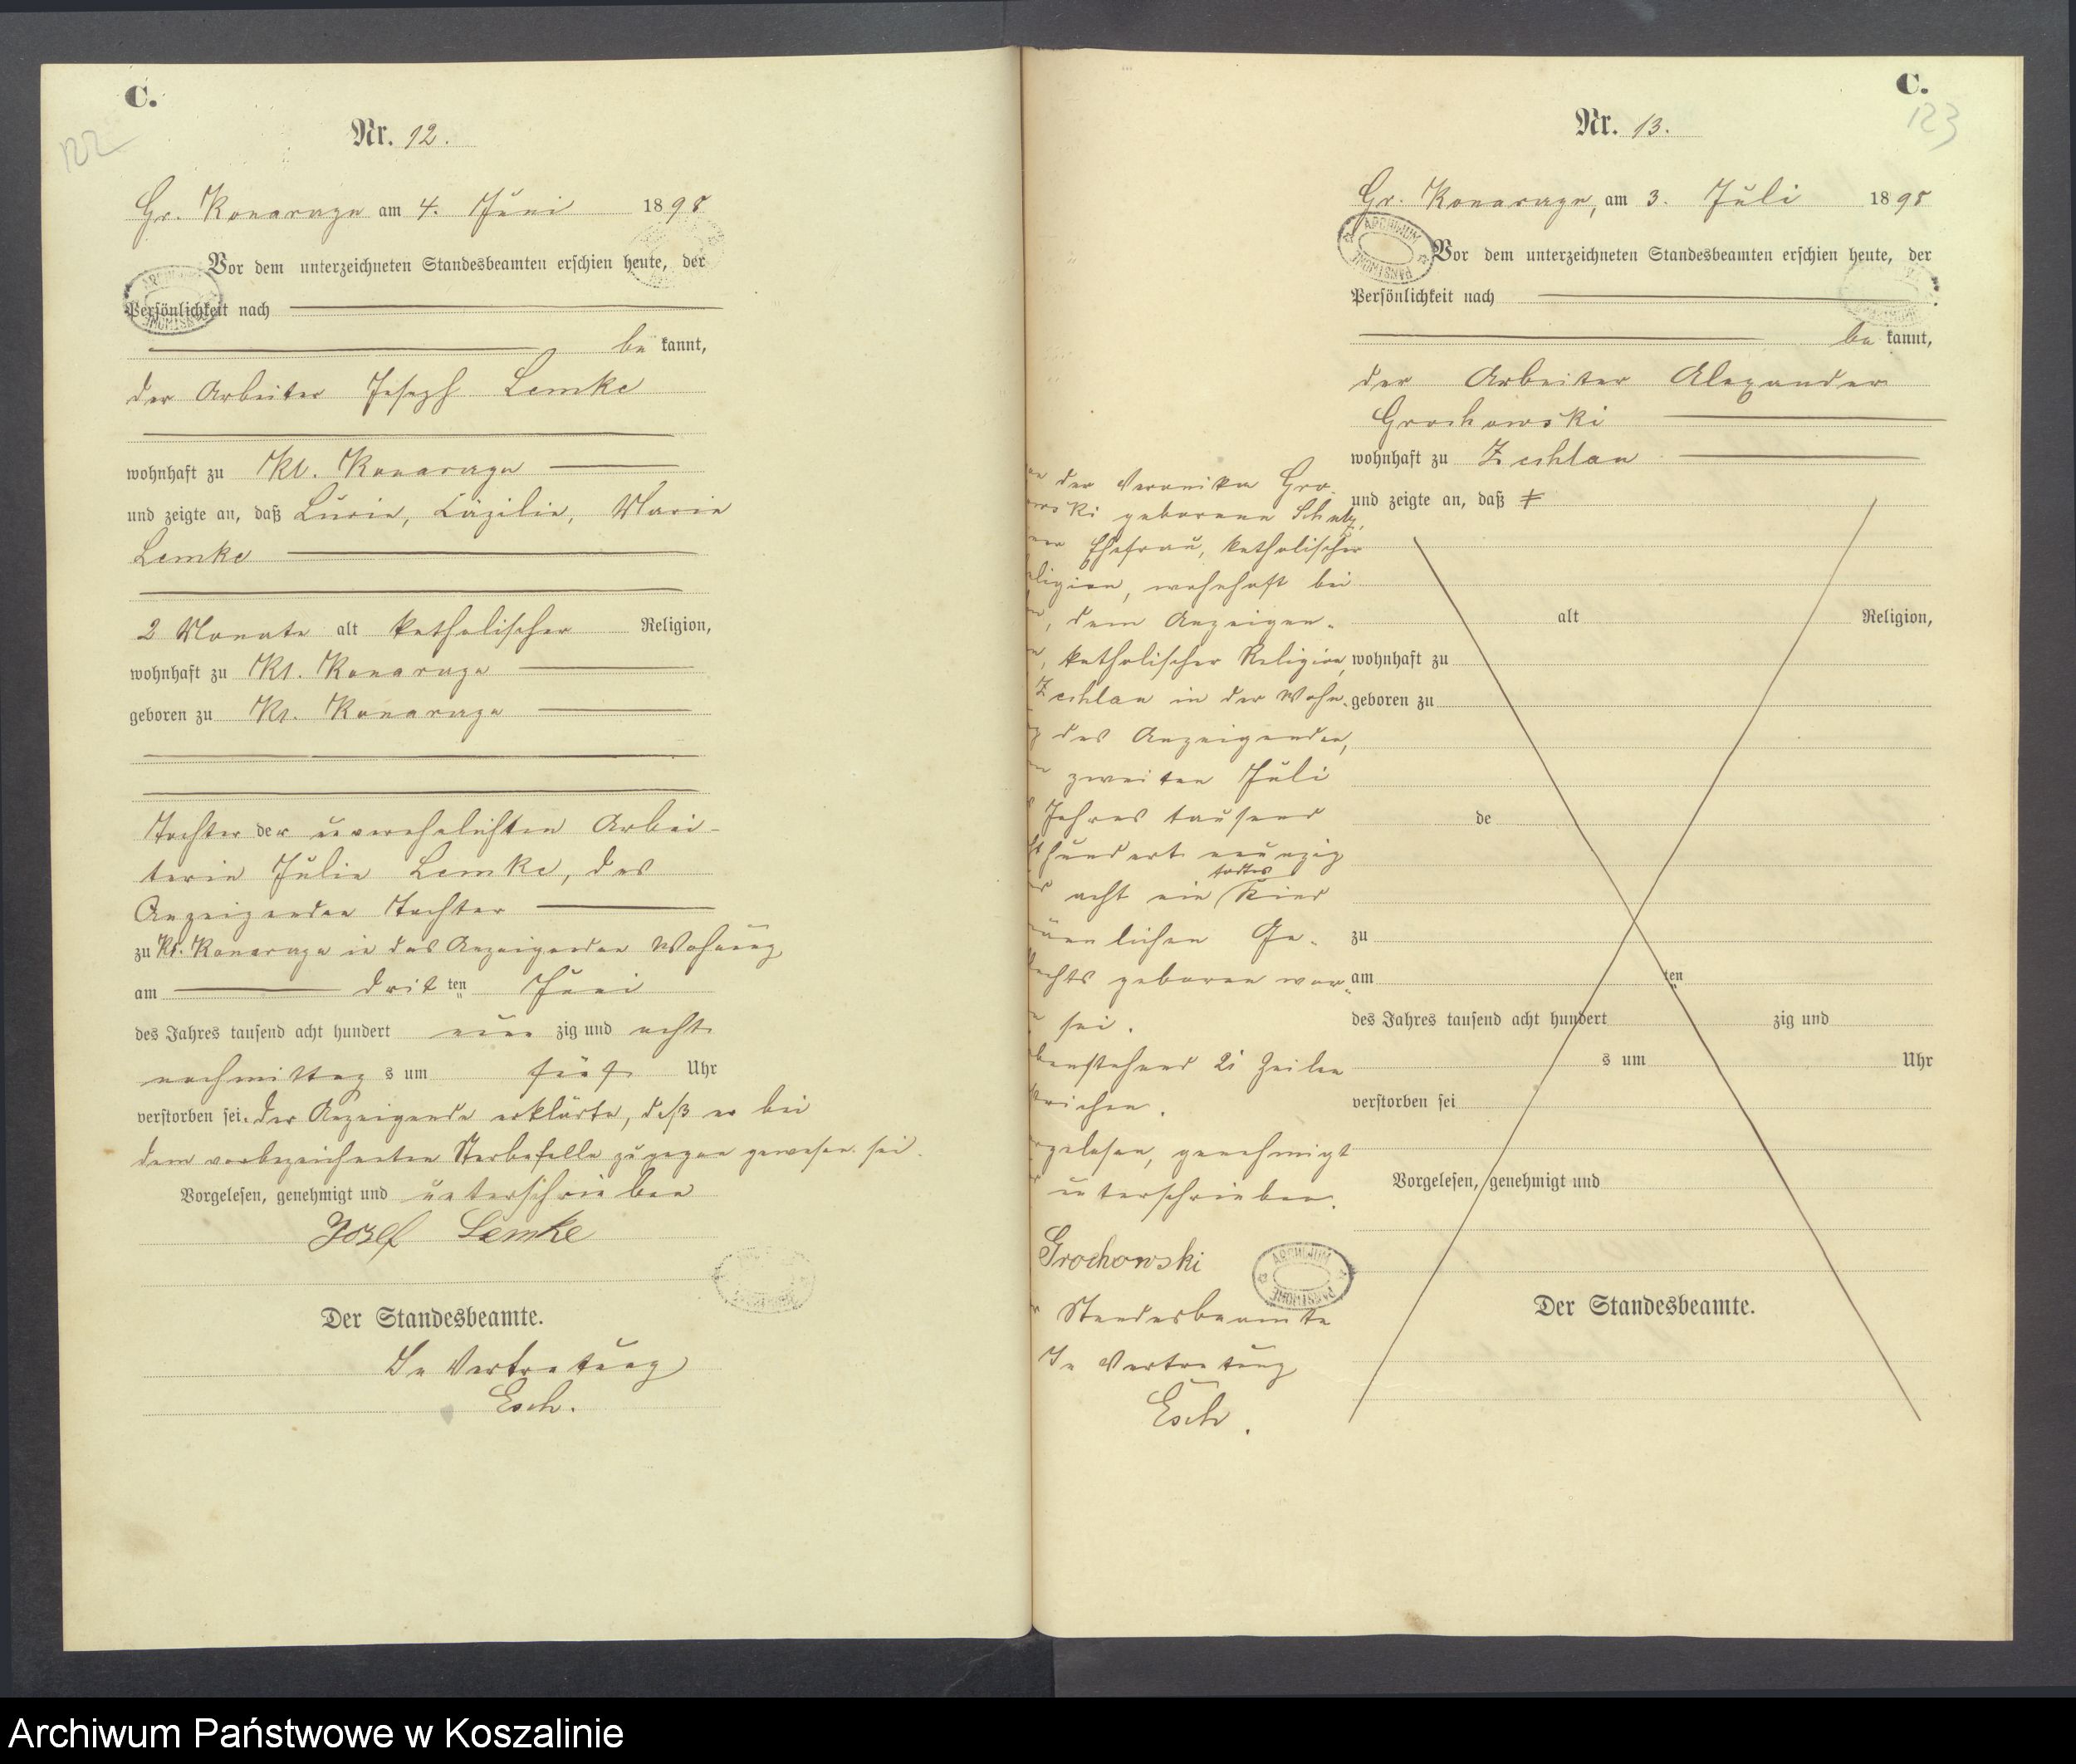 C.
122
Nr. 12.
Gr. Konarczyn am 4. Juni 1898
Vor dem unterzeichneten Standesbeamten erschien heute, der
Persönlichkeit nach
be kannt,
der Arbeiter Joseph Lemke
wohnhaft zu Kl. Konarczyn
und zeigte an, daß Lucie, Cäzilie, Marie
Lemke
2 Monate alt katholischer Religion,
wohnhaft zu Kl. Konarczyn
geboren zu Kl. Konarczyn
Tochter der unverehelichten Arbei-
terin Julie Lemke, des
Anzeigenden Tochter
zu Kl. Konarczyn in des Anzeigenden Wohnung
am drit ten Juni
des Jahres tausend acht hundert neun zig und acht
nachmittag s um fünf Uhr
verstorben sei. Der Anzeigende erklärte, daß er bei
dem vorbezeichneten Sterbefalle zugegen gewesen sei.
Vorgelesen, genehmigt und unterschrieben
Josef Lemke
Der Standesbeamte.
In Vertretung
Esch.
C.
123
Nr. 13.
Gr. Konarczyn, am 3. Juli 1898
Vor dem unterzeichneten Standesbeamten erschien heute, der
Persönlichkeit nach
be kannt,
der Arbeiter Alexander
Grochowski
wohnhaft zu Zechlau
und zeigte an, daß
alt Religion,
wohnhaft zu
geboren zu
de
zu
am ten
des Jahres tausend acht hundert zig und
s um Uhr
verstorben sei
Vorgelesen, genehmigt und
Der Standesbeamte.
der Veronika Gro-
wski geborene
Ehefrau, katholischer
ligion, wohnhaft bei
, dem Anzeigen-
, katholischer Religion,
Zechlau in der Wohn-
des Anzeigenden,
zweiten Juli
Jahres tausend
hundert neunzig
todtes
acht ein Kind
männlichen Ge-
chts geboren wor-
sei.
benstehend 21 Zeilen
trichen.
gelesen, genehmigt
unterschrieben.
Grochowski
Standesbeamte
In Vertretung
Esch.
ARCHIWUM PAŃSTWOWE
Archiwum Państwowe w Koszalinie